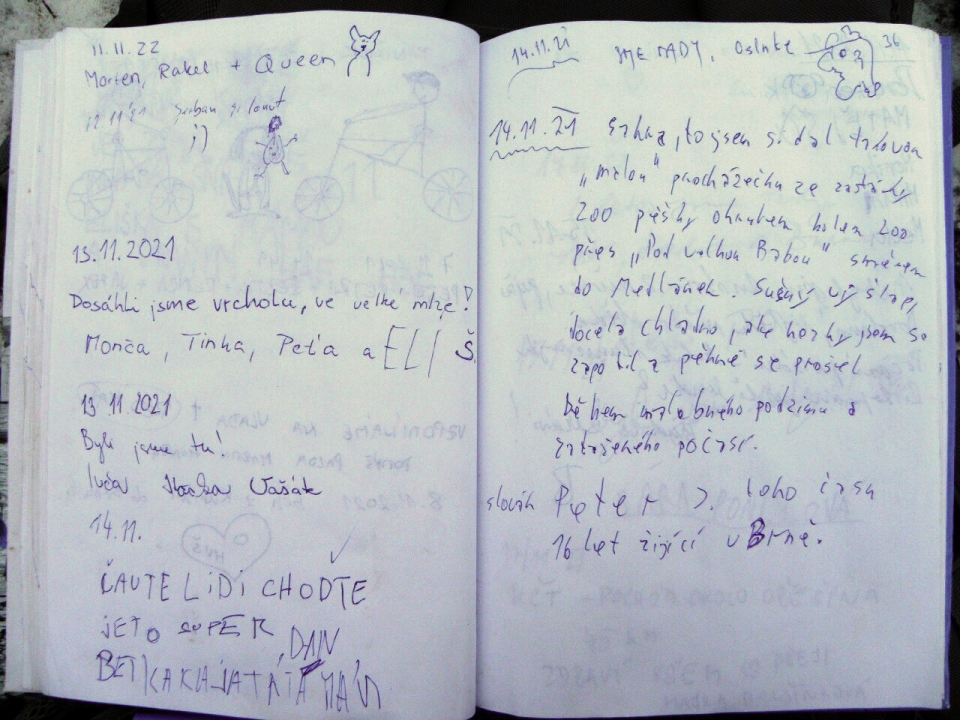 11.11.22
Morten, Rakel + Queen
12.11.21
;)
13.11.2021
Dosáhli jsme vrcholu, ve velké mlze!
Monča, Tinka, Peťa a ELIŠ
13 11.2021
Byli jsme tu!
Luča Vašák
14.11.
ČAUTE LIDI CHODTE
JETO SUPER
DAN
BETKA KAHJATÁTA MÁM
14.11.21 JME TADY, 36
14.11.21 jsem si dal takovou
„malou" procházečku ze zastávky
200 pěšky okruhem kolem ZOO
přes „Pod velkou Babou" směrem
do Medlánek. Slušný výšlap,
docela chladno, ale hezky jsem se
zapotil a pěkně se prošel
během mlhabného podzimu a
zataženého počasí.
slovák Peter S. toho času
16 let žijící v Brně.